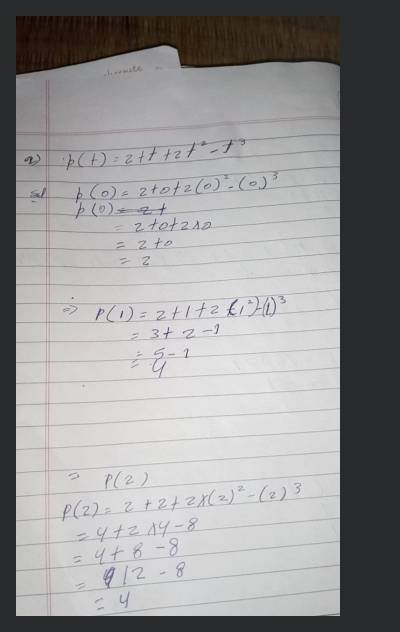 Q) p(t) = 2+t+2t²-t³
Sol p(0) = 2+0+2(0)²-(0)³
p(0) = 2+
= 2+0+2×0
= 2+0
= 2
⇒ P(1) = 2+1+2×(1²)-(1)³
= 3+2-1
= 5-1
= 4
= P(2)
P(2) = 2+2+2×(2)²-(2)³
= 4+2×4-8
= 4+8-8
= 12-8
= 4